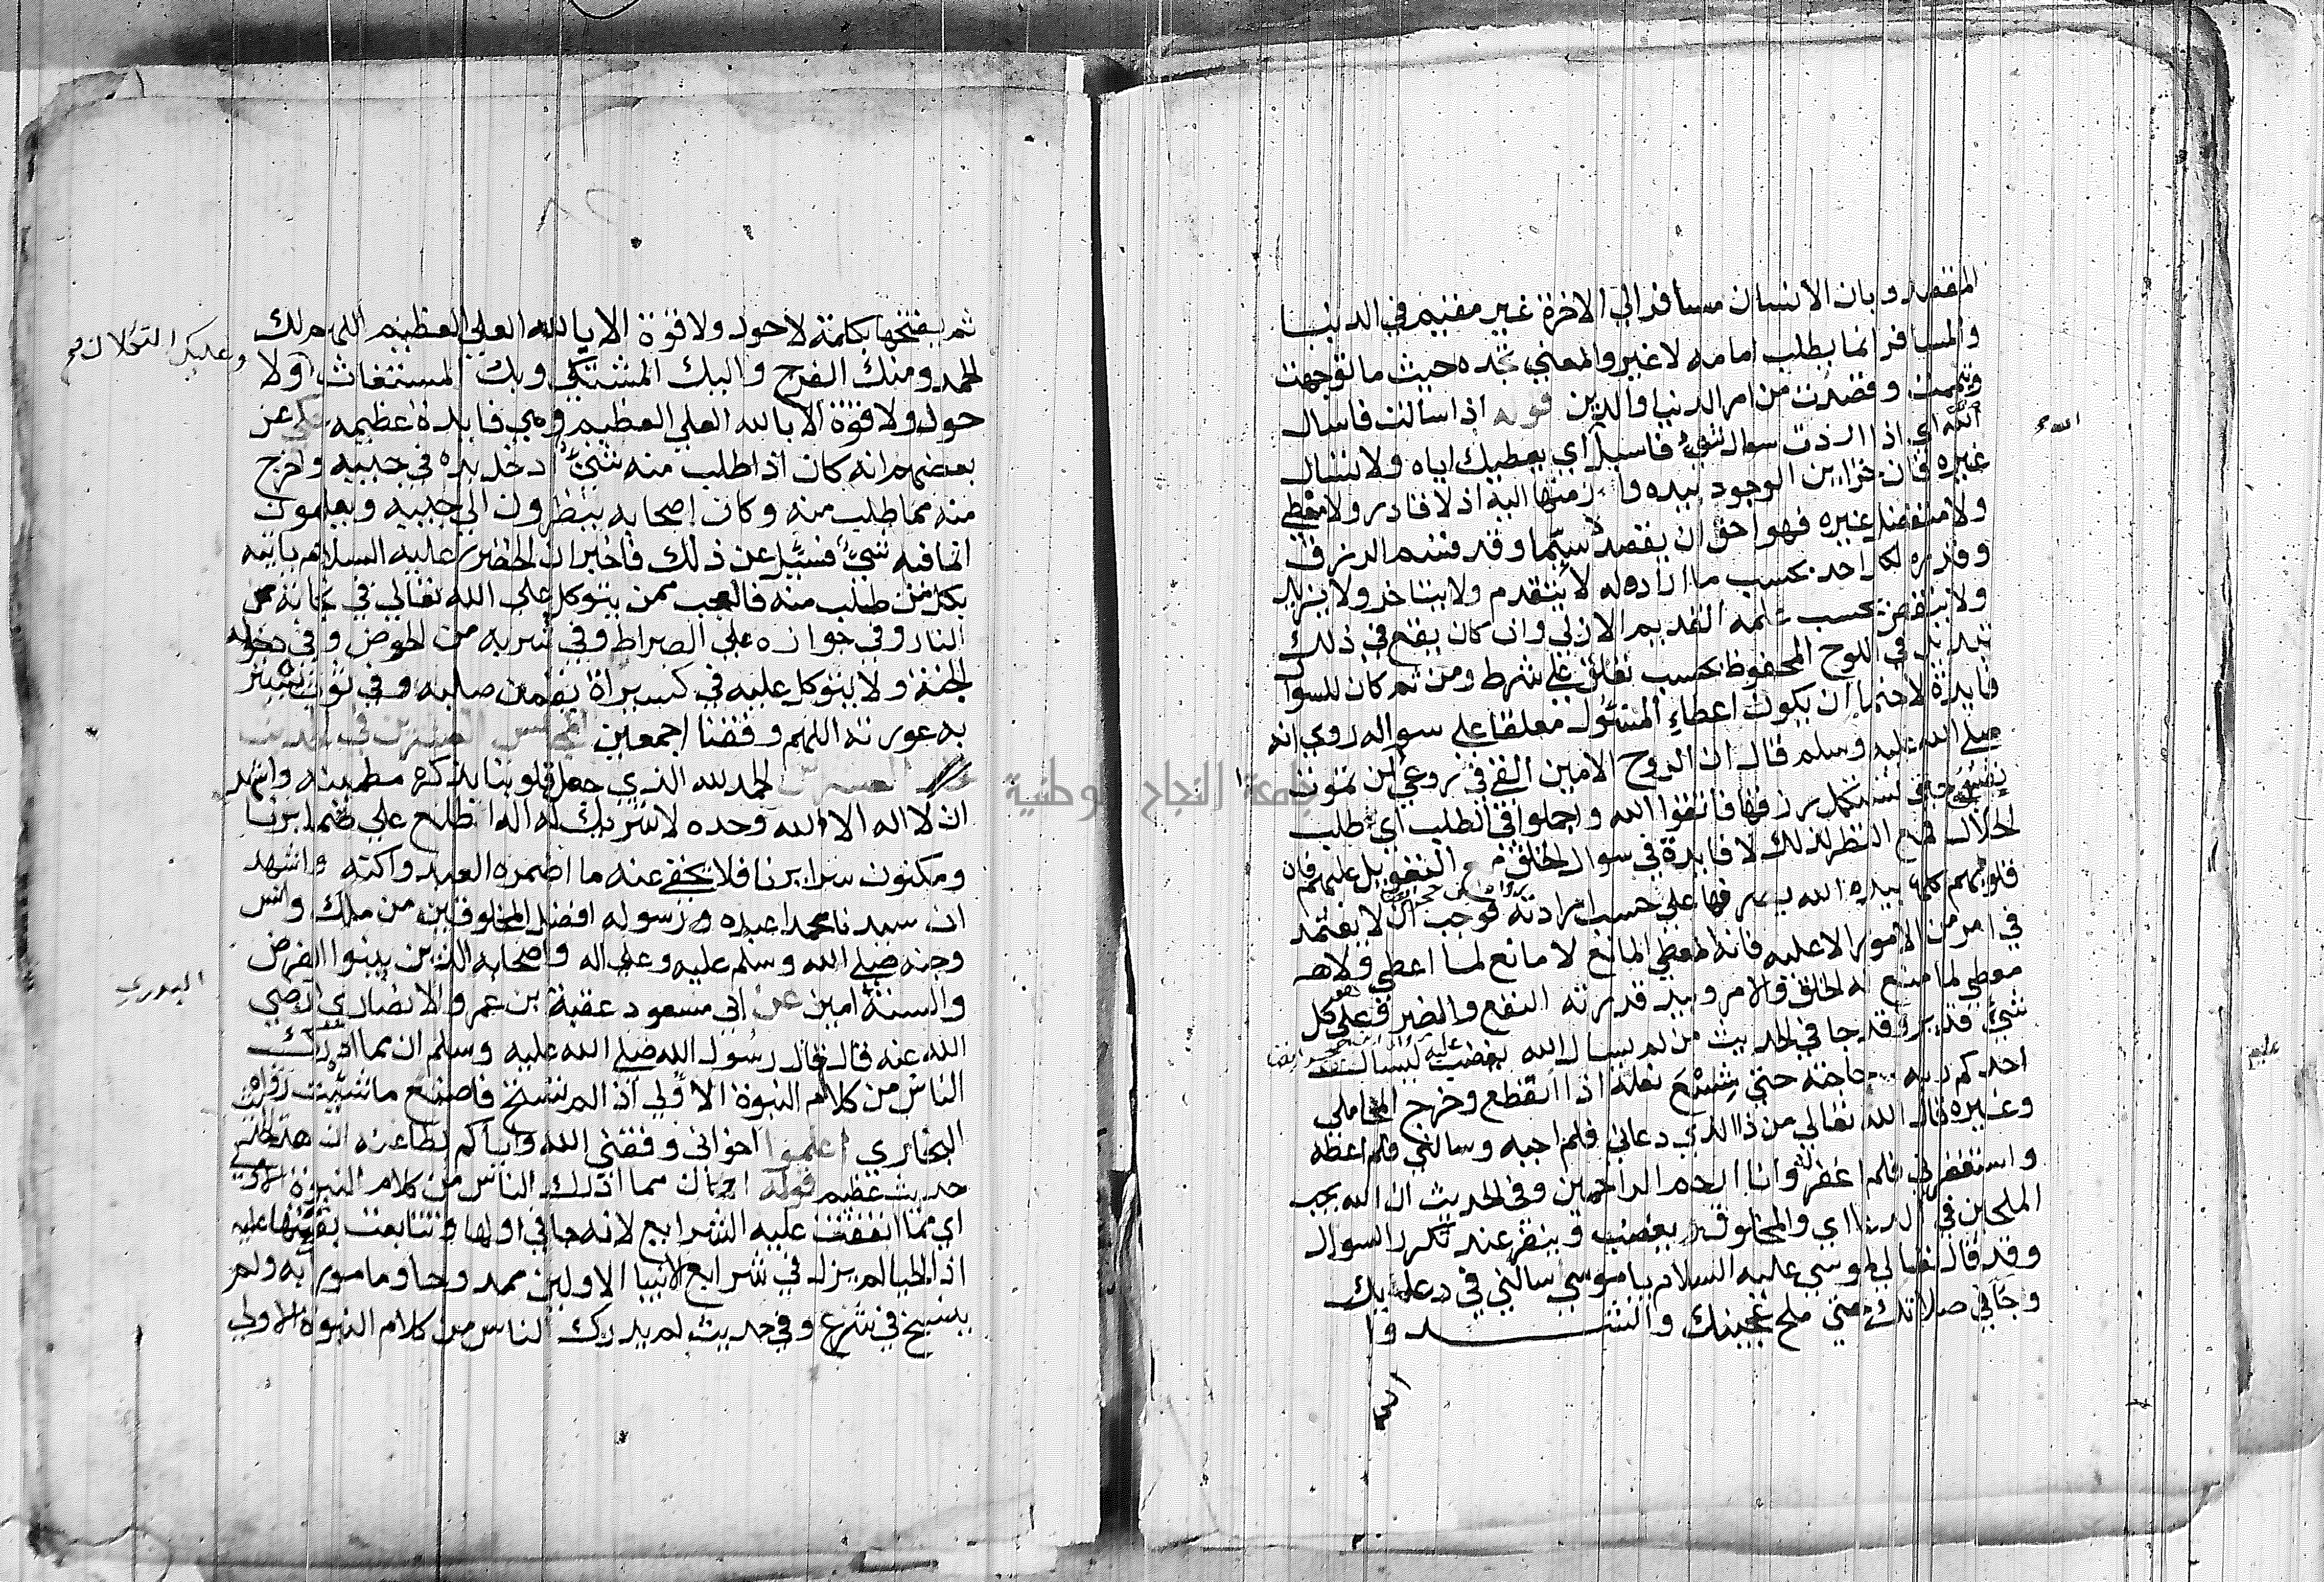 المقصد وبان الانسان مسافر الي الاخرة غير مقيم في الدنيا
والمسافر انما يطلب امامه لا غير والمعني تجده حيث ما توجهت
وتيممت وقصدت من امر الدنيا والدين قوله اذا سالت فاسال
الله اي اذا اردت سوال شيء فاسيل اي يعطيك اياه ولا تسال
غيره فان خزاين الوجود بيده وازمتها اليه اذ لا قادر ولا معطي
ولا متفضل غيره فهو احق ان يقصد لا سيما وقد قسم الرزق
وقدره لكل احد بحسب ما اراده له لا يتقدم ولا يتاخر ولا يزيد
ولا ينقص بحسب علمه القديم الازلي وان كان يقع في ذلك
تبديل في اللوح المحفوظ بحسب تعليق علي شرط ومن ثم كان للسوال
فايدة لاحتمال ان يكون اعطاء المسئول معلقا علي سواله روي انه
صلي الله عليه وسلم قال ان الروح الامين القي في روعي لن تموت
نفس حتي تستكمل رزقها فاتقوا الله واجملوا في الطلب اي طلب
الحلال فمع النظر لذلك لا فايدة في سوال الخلق مع التعويل عليهم فان
قلوبهم كلها بيده الله يصرفها علي حسب ارادته فوجب ان لا يعتمد
في امر من الامور الا عليه فانه المعطي المانع لا مانع لما اعطي ولا
معطي لما منع له الخلق والامر وبيد قدرته النفع والضر وهو علي كل
شيء قدير وقد جا في الحديث من لم يسال الله يغضب عليه ليسال
احدكم ربه حاجته حتي شسع نعله اذا انقطع وخرج المحاملي
وغيره قال الله تعالي من ذا الذي دعاني فلم اجبه وسالني فلم اعطه
واستغفرني فلم اغفر له وانا ارحم الراحمين وفي الحديث ان الله يحب
الملحين في الدعا اي والمخلوق يغضب وينفر عند تكرر السوال
وقد قال تعالي لموسي عليه السلام يا موسي سالني في دعايك
وجاني صلاتك حتي ملح عجينك وانشدوا
ثم يفتحها بكلمة لا حول ولا قوة الا بالله العلي العظيم اللهم لك
الحمد ومنك الفرج واليك المشتكي وبك المستغاث ولا
وعليك التكلان صح
حول ولا قوة الا بالله العلي العظيم وهي فايدة عظيمه حكي عن
بعضهم انه كان اذا طلب منه شيء ادخل يده في جيبه واخرج
منه ما طلب منه وكان اصحابه ينظرون الي جيبه ويعلمون
انما فيه شيء فسيل عن ذلك فاخبر ان الخضر عليه السلام ياتيه
بكل من طلب منه فالعجب ممن يتوكل علي الله تعالي في نجاته من
النار وفي جوازه علي الصراط وفي شربه من الحوض وفي دخوله
الجنة ولا يتوكل عليه في كسيراة يقمن صلبه وفي ثوب يستر
به عورته اللهم وفقنا اجمعين المجلس العشرين في الحديث
العشرين الحمد لله الذي جعل قلوبنا بذكره مطمينه واشهد
ان لا اله الا الله وحده لا شريك له اله اطلع علي ضمايرنا
ومكنون سرايرنا فلا يخفي عنه ما اضمره العبد واكته واشهد
ان سيدنا محمدا عبده ورسوله افضل المخلوقين من ملك وانس
وجنه صلي الله وسلم عليه وعلي اله واصحابه الذين بينوا الفرض
والسنة امين عن ابي مسعود عقبة بن عمرو الانصاري رضي
البدري
الله عنه قال قال رسول الله صلي الله عليه وسلم ان مما ادرك
الناس من كلام النبوة الاولي اذا لم تستح فاصنع ما شيت رواه
البخاري اعلموا اخواني وفقني الله واياكم لطاعته ان هذا
حديث عظيم قوله ان مما ادرك الناس من كلام النبوة الاولي
اي مما اتفقت عليه الشرايع لانه جا في اولها وتتابعت بقيتها عليه
اذ الحيا لم يزل في شرايع الانبيا الاولين ممدوحا ومامورا به ولم
ينسخ في شرع وفي حديث لم يدرك الناس من كلام النبوة الاولي
جامعة النجاح الوطنية